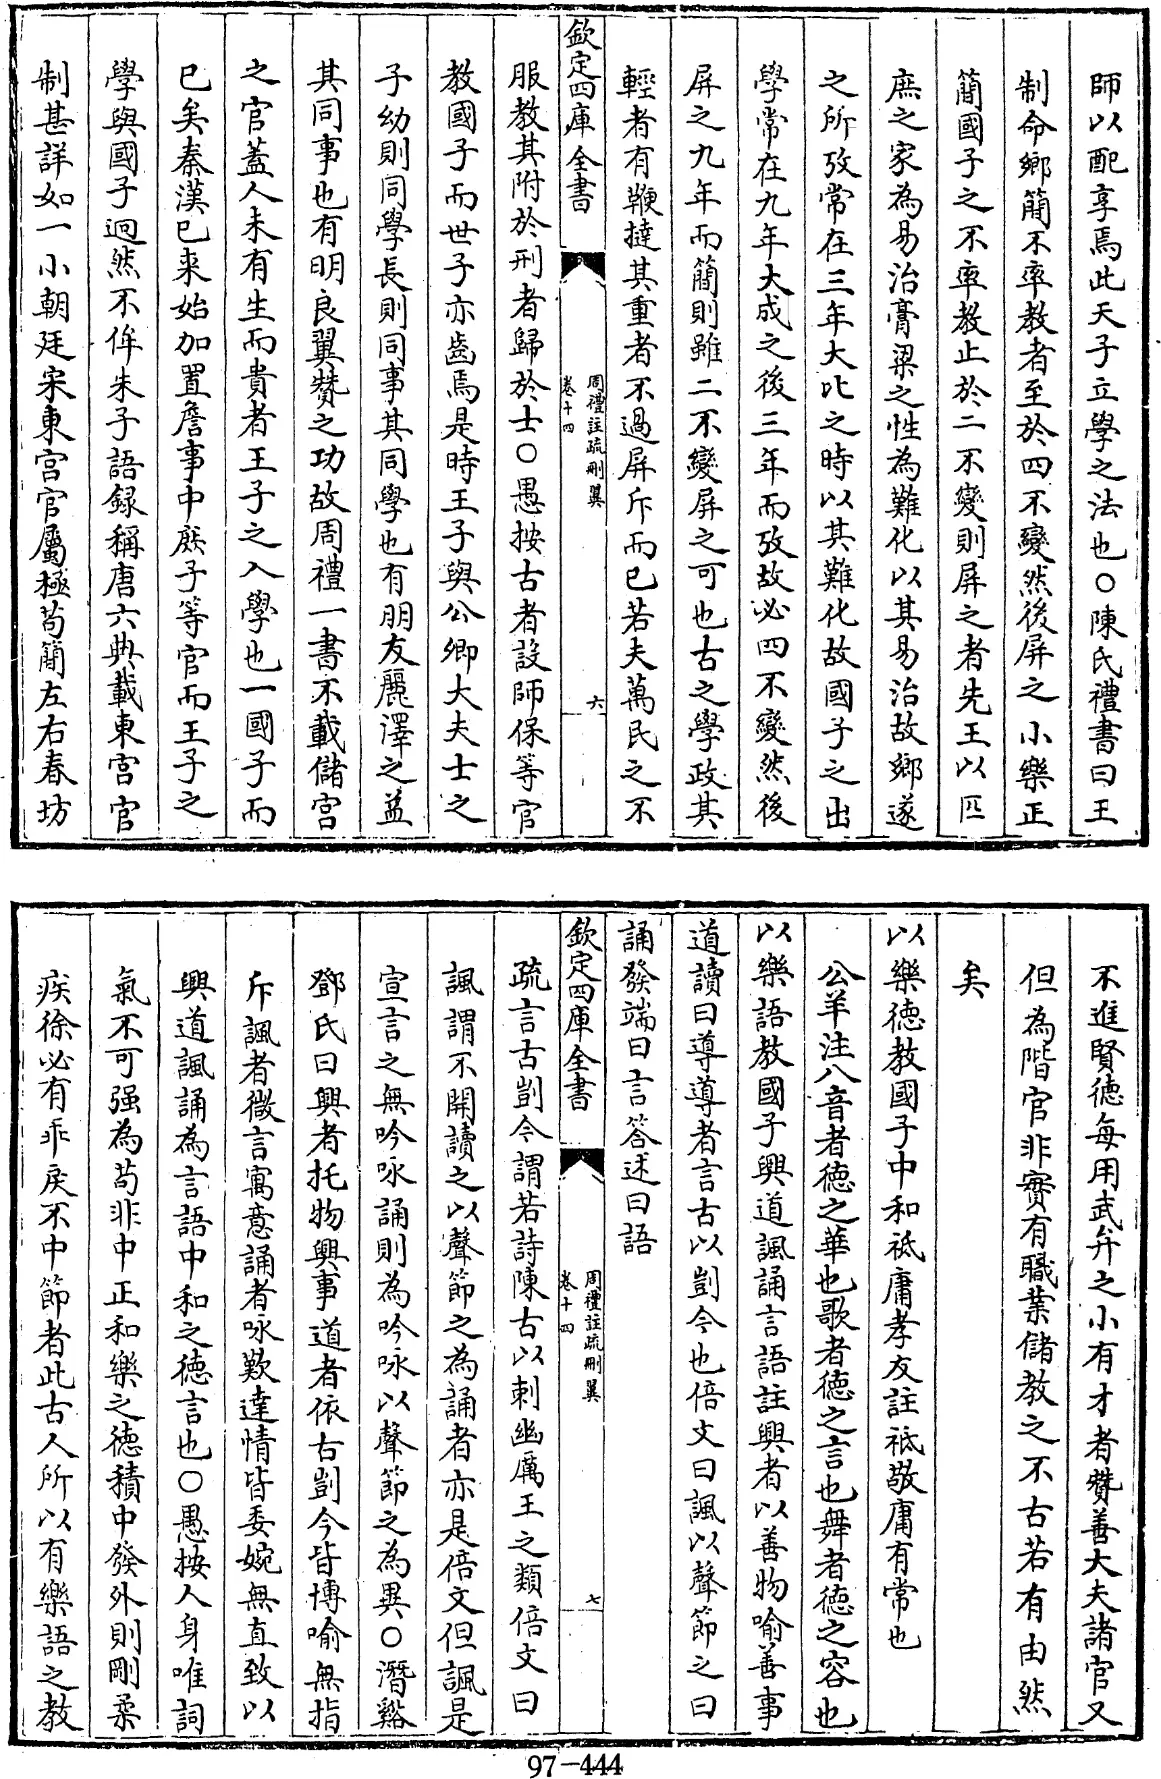 師以配享焉此天子立學之法也○陳氏禮書曰王
制命鄉簡不率教者至於四不變然後屏之小樂正
簡國子之不率教止於二不變則屏之者先王以匹
庶之家為易治膏粱之性為難化以其易治故鄉遂
之所攷常在三年大比之時以其難化故國子之出
學常在九年大成之後三年而攷故必四不變然後
屏之九年而簡則雖二不變屏之可也古之學政其
輕者有鞭撻其重者不過屏斥而已若夫萬民之不
欽定四庫全書
周禮註疏刪翼
卷十四
六
服教其附於刑者歸於士○愚按古者設師保等官
教國子而世子亦齒焉是時王子與公卿大夫士之
子幼則同學長則同事其同學也有朋友麗澤之益
其同事也有明良翼贊之功故周禮一書不載儲宮
之官蓋人未有生而貴者王子之入學也一國子而
已矣秦漢已來始加置詹事中庶子等官而王子之
學與國子迥然不侔朱子語録稱唐六典載東宮官
制甚詳如一小朝廷宋東宮官屬極苟簡左右春坊
不進賢德每用武弁之小有才者贊善大夫諸官又
但為階官非實有職業儲教之不古若有由然
矣
以樂德教國子中和祗庸孝友註祗敬庸有常也
公羊注八音者德之華也歌者德之言也舞者德之容也
以樂語教國子興道諷誦言語註興者以善物喻善事
道讀曰導導者言古以剴今也倍文曰諷以聲節之曰
誦發端曰言答述曰語
欽定四庫全書
周禮註疏刪翼
卷十四
七
疏言古剴今謂若詩陳古以刺幽厲王之類倍文曰
諷謂不開讀之以聲節之為誦者亦是倍文但諷是
宣言之無吟咏誦則為吟咏以聲節之為異○潛谿
鄧氏曰興者托物興事道者依古剴今皆博喻無指
斥諷者微言寓意誦者咏歎達情皆委婉無直致以
興道諷誦為言語中和之德言也○愚按人身唯詞
氣不可强為苟非中正和樂之德積中發外則剛柔
疾徐必有乖戾不中節者此古人所以有樂語之教
97-444